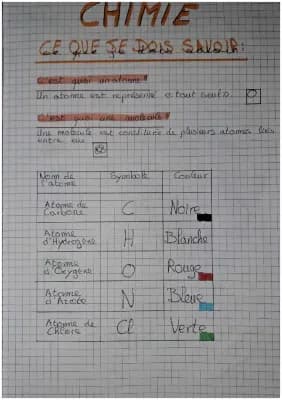 CHIMIE
CE QUE JE DOIS SAVOIR:
C'est quoi un atome?
Un atome est représenté tout seul
C'est quoi une molécule?
Une molécule est constituée de plusieurs atomes liés
entre eux
Nom de l'atome Symbole Couleur
Atome de Carbone C Noire
Atome d'Hydrogène H Blanche
Atome d'Oxygène O Rouge
Atome d'Azote N Bleue
Atome de Chlore Cl Verte